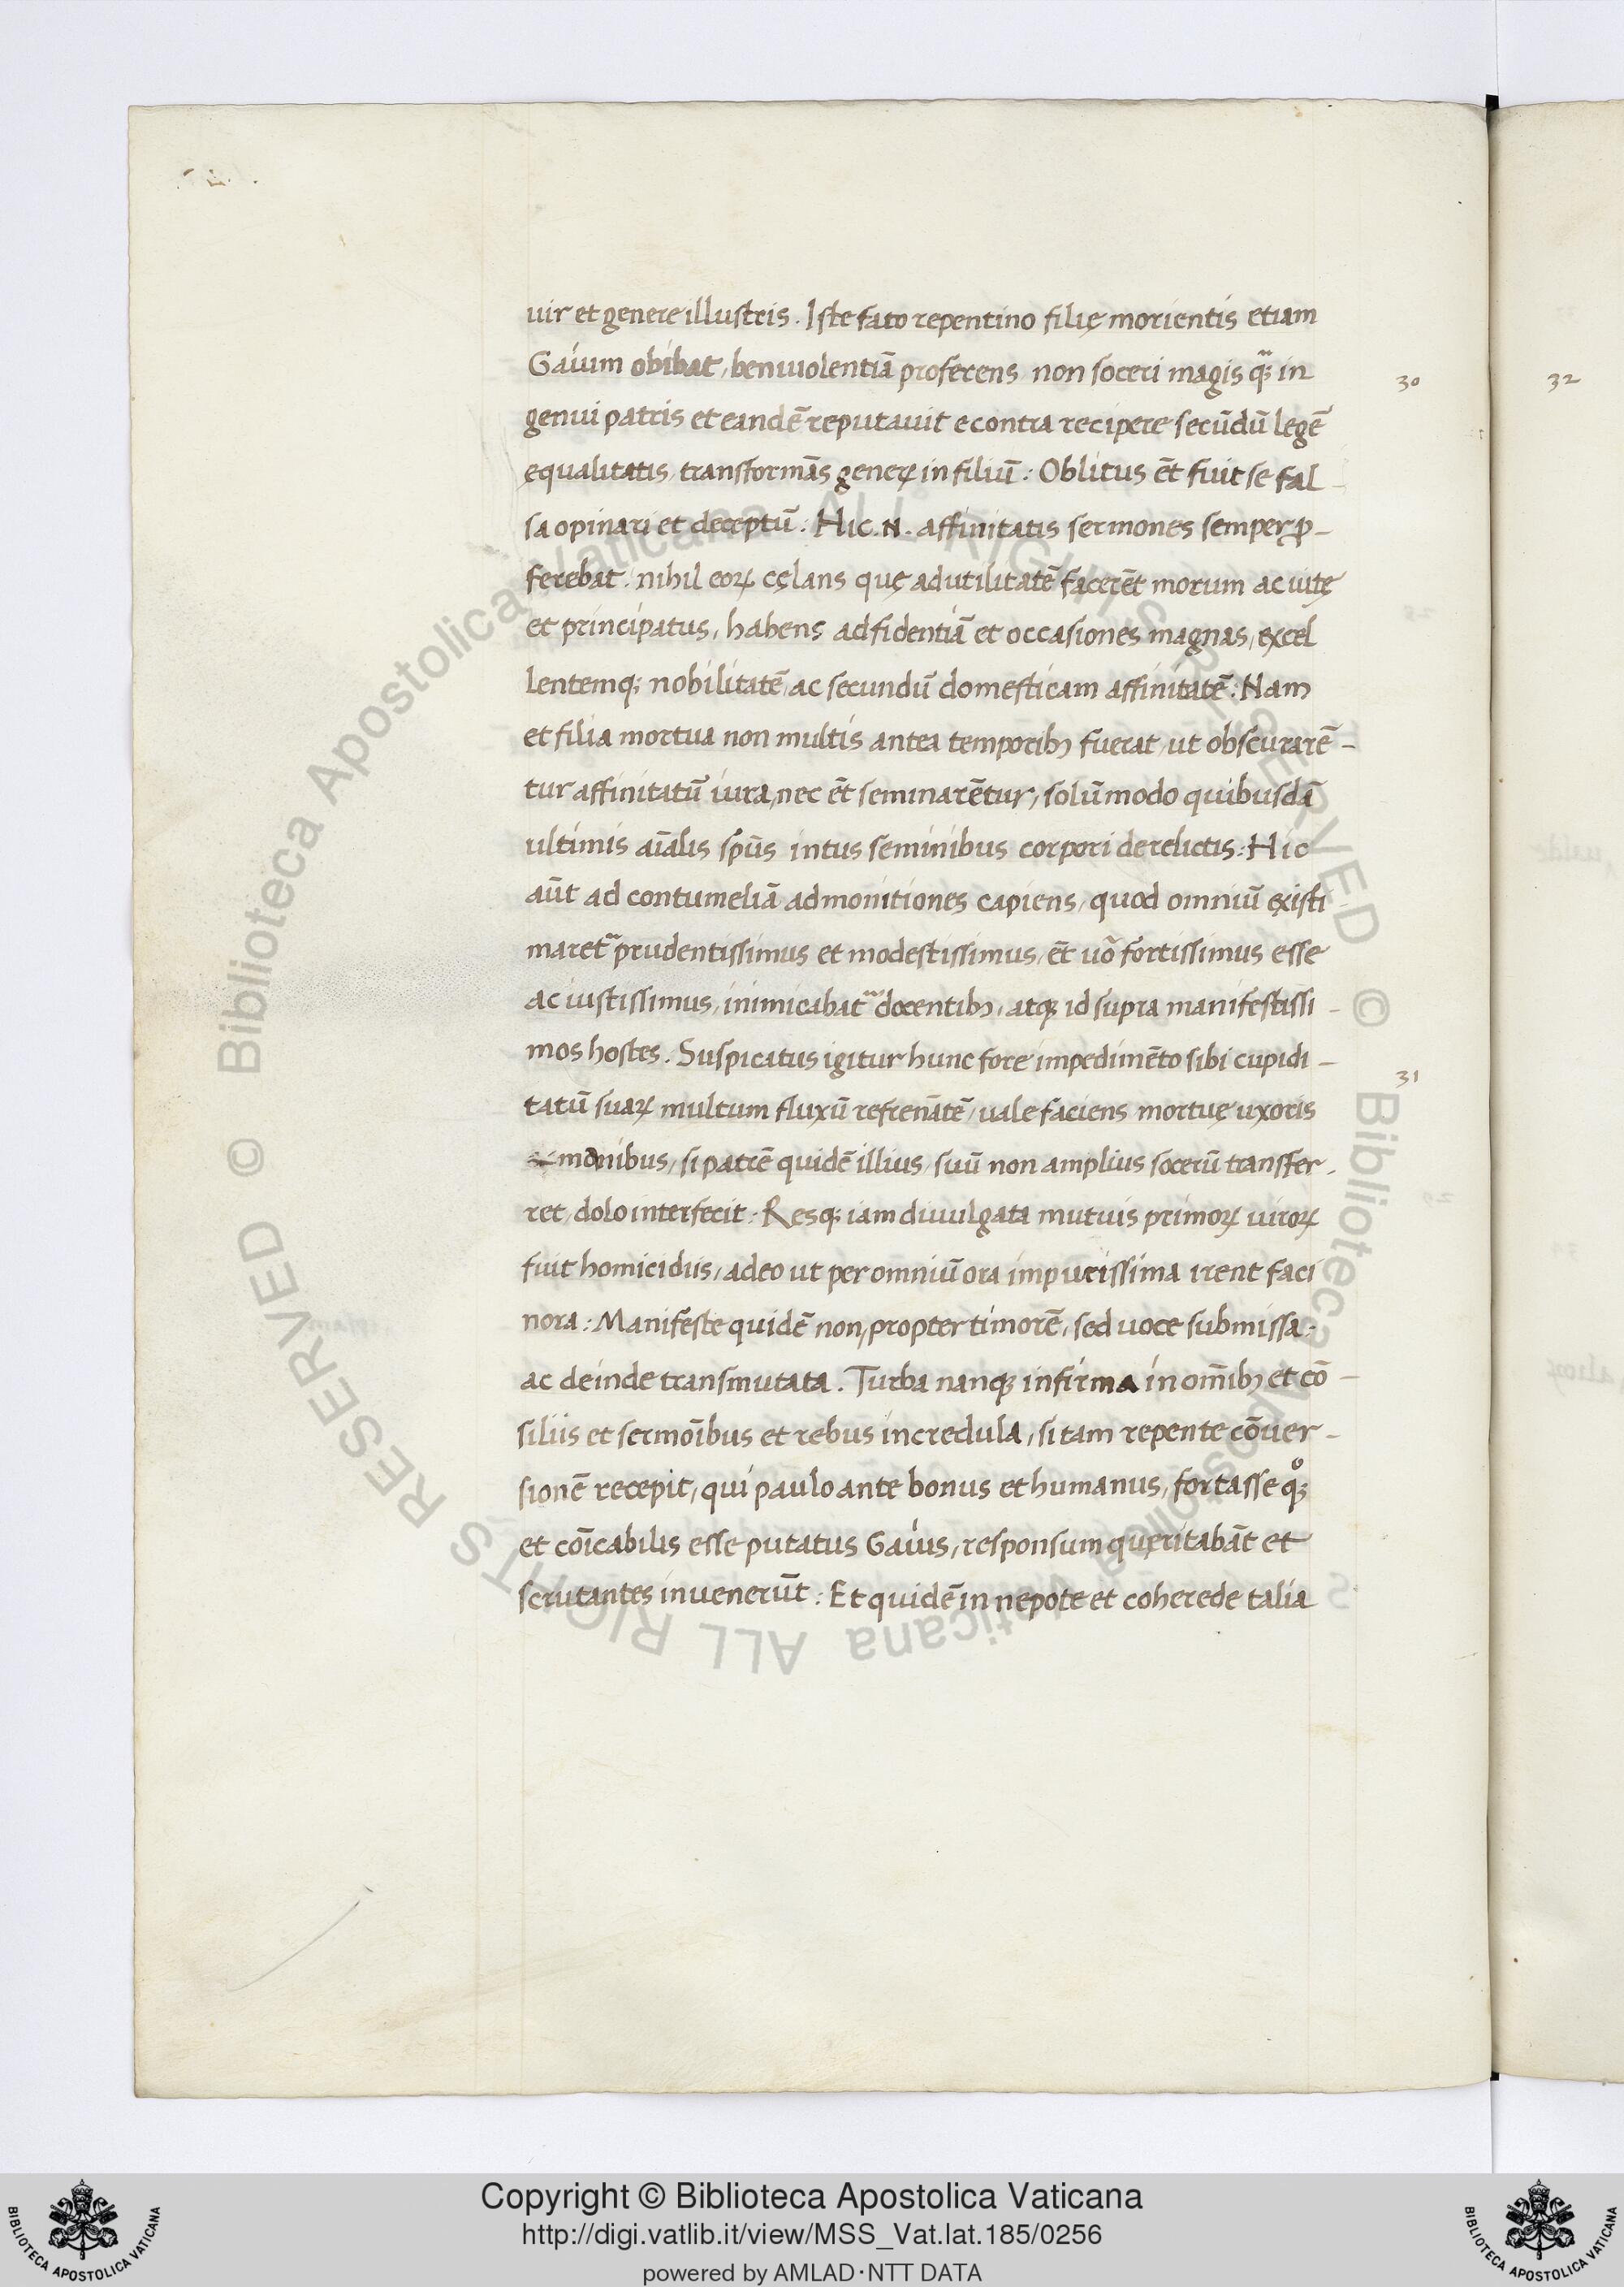 uir et genere illustris. Iste fato repentino filię morientis etiam
Gaium obibat, beniuolentiā proferens non soceri magis q̃ꝫ in
genui patris et eandē reputauit econtra recipere secūdū legē
ęqualitatis, transformās generꝝ in filiū: Oblitus ēt fuit se fal
sa opinari et deceptū: Hic .N. affinitatis sermones semper ꝓ-
ferebat, nihil eoꝝ cęlans quę ad utilitatē facerēt morum ac uitę
et principatus, habens ad fidentiā et occasiones magnas, excel
lentemqꝫ nobilitatē, ac secundū domesticam affinitatē: Nam
et filia mortua non multis antea temporibꝫ fuerat, ut obscurarē-
tur affinitatū iura, nec ēt seminarētur, solūmodo quibusdā
ultimis aīalis spūs intus seminibus corpori derelictis: Hic
aūt ad contumeliā admonitiones capiens, quod omniū existi
maret᷑ prudentissimus et modestissimus, ēt uō fortissimus esse
ac iustissimus, inimicabat᷑ docentibꝫ, atqꝫ id supra manifestissi-
mos hostes. Suspicatus igitur hunc fore impedimēto sibi cupidi-
tatū suaꝝ multum fluxū refrenātē, uale faciens mortuę uxoris
monibus, si patrē quidē illius, suū non amplius socerū transfer-
ret, dolo interfecit: Resqꝫ iam diuulgata mutuis primoꝝ uiroꝝ
fuit homicidiis, adeo ut per omniū ora impurissima irent faci
nora: Manifeste quidē non, propter timorē, sed uoce submissa.
ac deinde transmutata. Turba nanqꝫ infirma in omībꝫ et cō-
siliis et sermoībus et rebus incredula, si tam repente cōuer-
sionē recepit, qui paulo ante bonus et humanus, fortasse qͦꝫ
et coīcabilis esse putatus Gaius, responsum quęritabāt et
scrutantes inuenerūt: Et quidē in nepote et coherede talia
30
31
32
© Biblioteca Apostolica Vaticana ALL RIGHTS RESERVED © Biblioteca Apostolica Vaticana ALL RIGHTS RESERVED
BIBLIOTECA APOSTOLICA VATICANA
Copyright © Biblioteca Apostolica Vaticana
http://digi.vatlib.it/view/MSS_Vat.lat.185/0256
powered by AMLAD·NTT DATA
BIBLIOTECA APOSTOLICA VATICANA